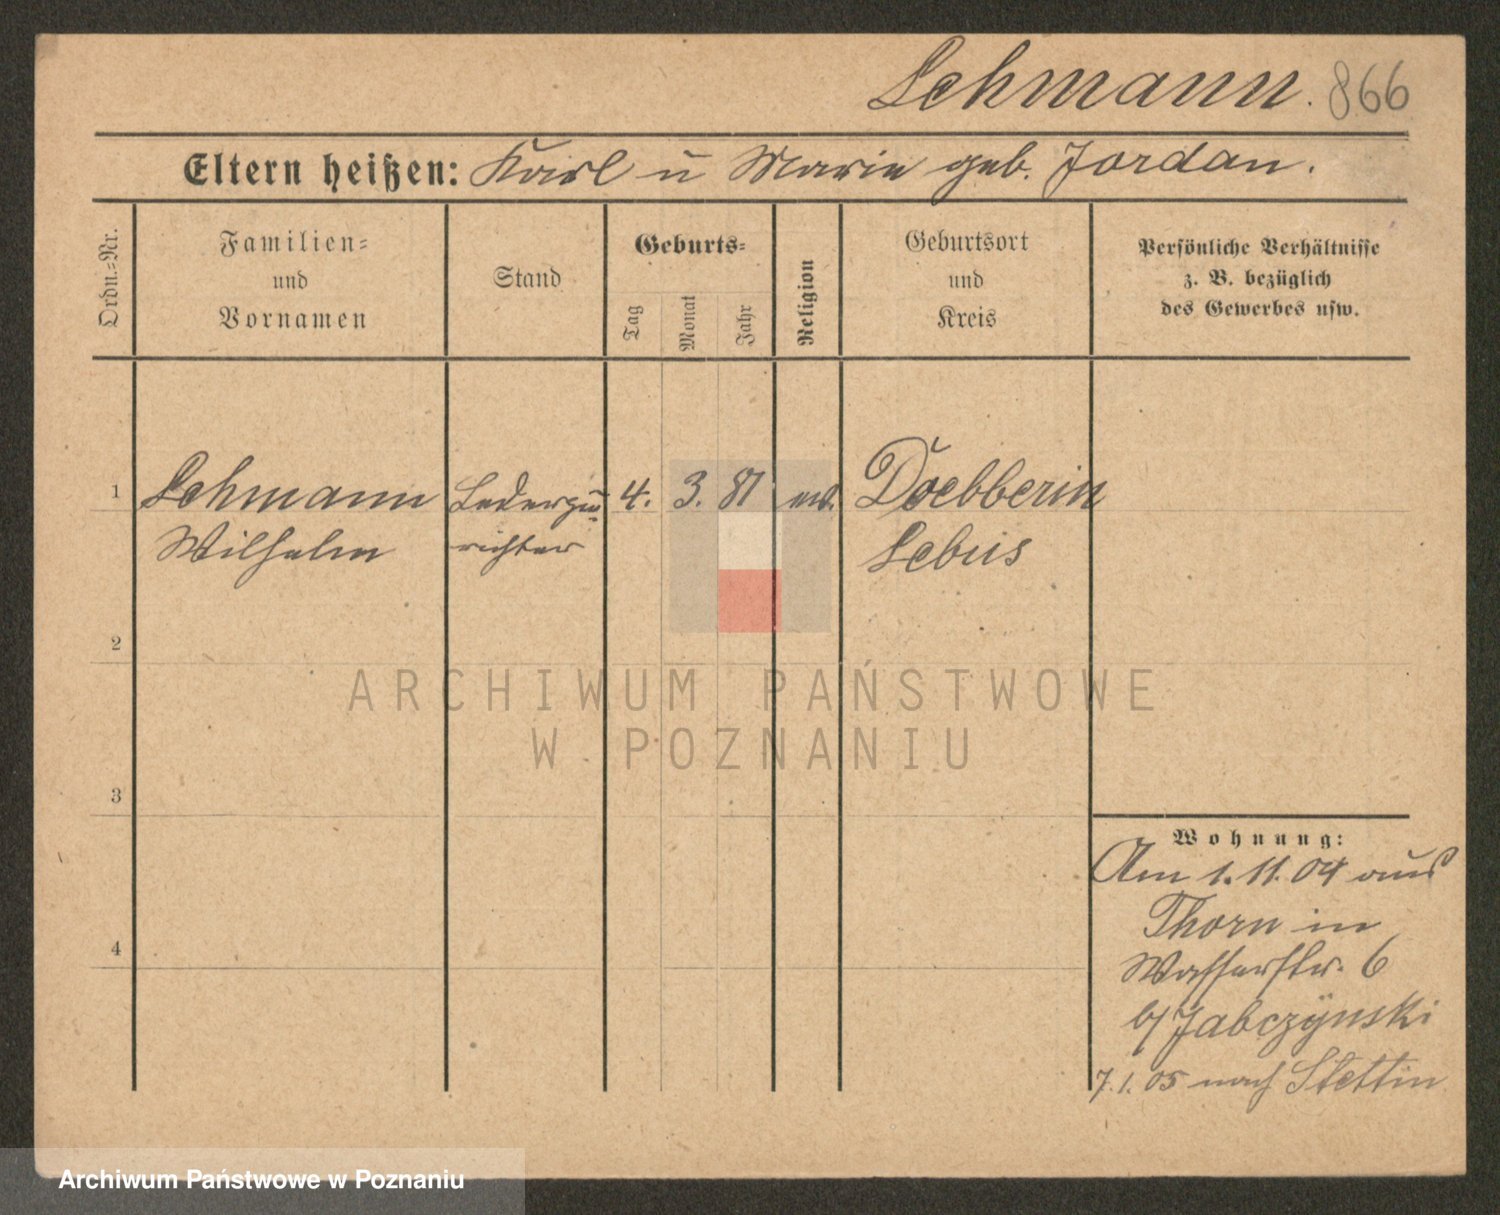 Lehmann. 866
Eltern heißen: Karl u Marie geb. Jordan.
Ordn.=Nr.
Familien=
und
Vornamen
Stand
Geburts=
Tag
Monat
Jahr
Religion
Geburtsort
und
Kreis
Persönliche Verhältnisse
z. B. bezüglich
des Gewerbes usw.
1 Lehmann Lederzu= 4. 3. 81 ev. Doebberin
Wilhelm richter Lebus
2
3
4
Wohnung:
Am 1.11.04 aus
Thorn in
Wasserstr. 6
b/ Jabczÿnski
7.1.05 nach Stettin
ARCHIWUM PAŃSTWOWE
W POZNANIU
Archiwum Państwowe w Poznaniu